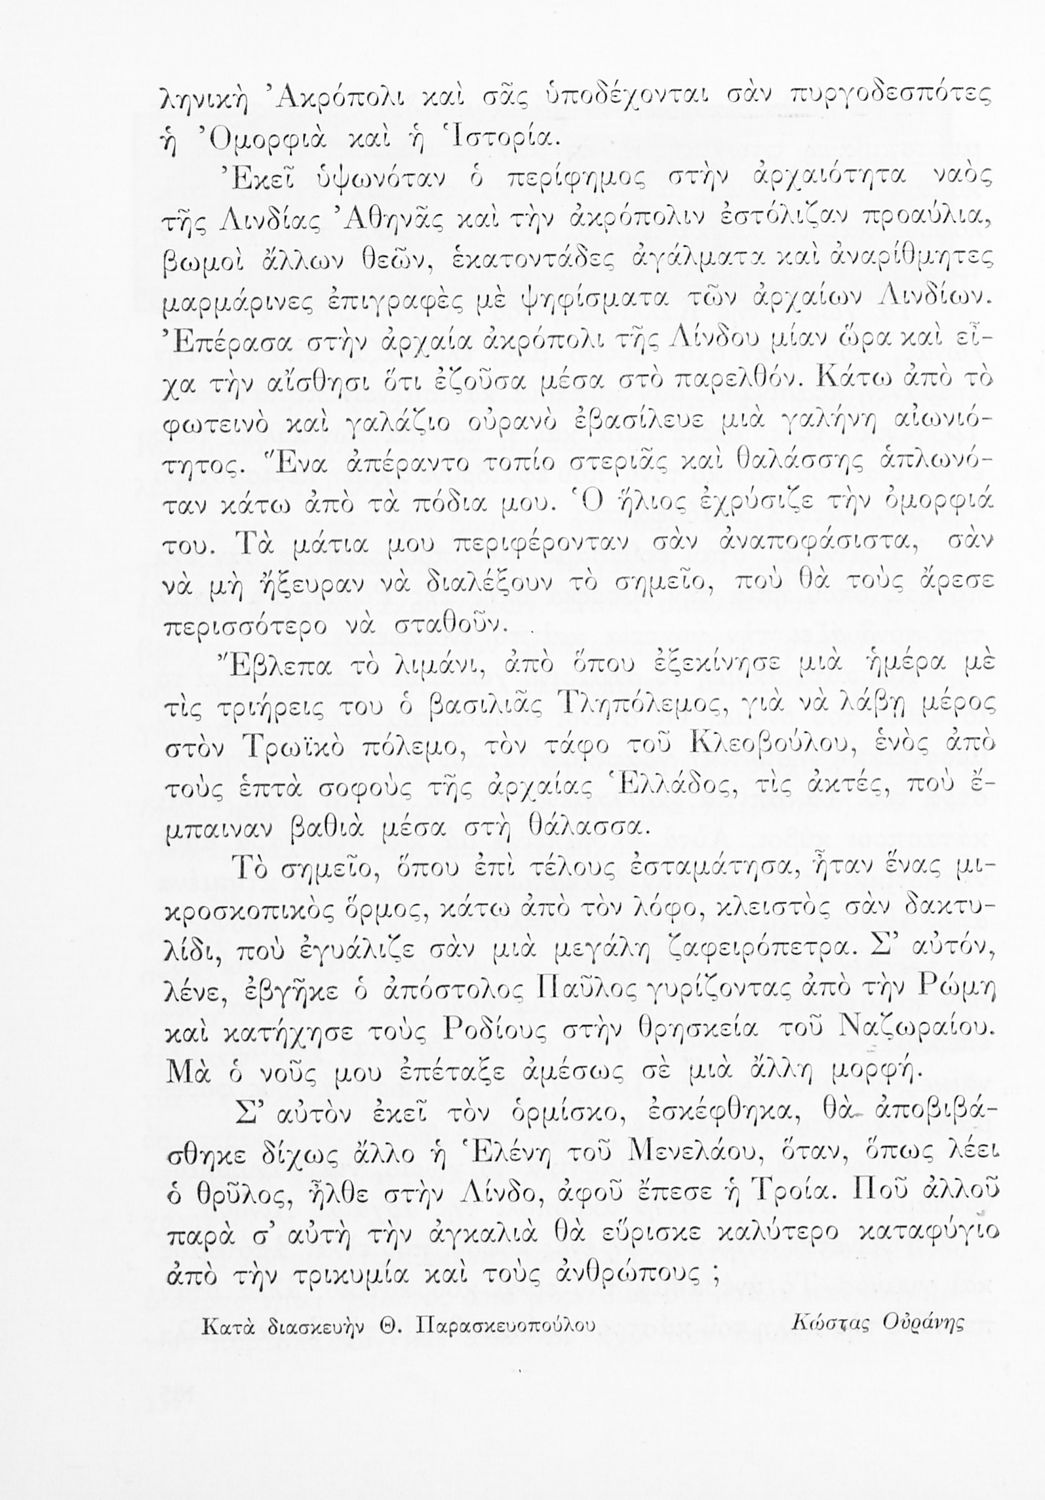 ληνικὴ Ἀκρόπολι καὶ σᾶς ὑποδέχονται σὰν πυργοδεσπότες
ἡ Ὀμορφιὰ καὶ ἡ Ἱστορία.
Ἐκεῖ ὑψωνόταν ὁ περίφημος στὴν ἀρχαιότητα ναὸς
τῆς Λινδίας Ἀθηνᾶς καὶ τὴν ἀκρόπολιν ἐστόλιζαν προαύλια,
βωμοὶ ἄλλων θεῶν, ἑκατοντάδες ἀγάλματα καὶ ἀναρίθμητες
μαρμάρινες ἐπιγραφὲς μὲ ψηφίσματα τῶν ἀρχαίων Λινδίων.
Ἐπέρασα στὴν ἀρχαία ἀκρόπολι τῆς Λίνδου μίαν ὥρα καὶ εἶ-
χα τὴν αἴσθησι ὅτι ἐζοῦσα μέσα στὸ παρελθόν. Κάτω ἀπὸ τὸ
φωτεινὸ καὶ γαλάζιο οὐρανὸ ἐβασίλευε μιὰ γαλήνη αἰωνιό-
τητος. Ἕνα ἀπέραντο τοπίο στεριᾶς καὶ θαλάσσης ἁπλωνό-
ταν κάτω ἀπὸ τὰ πόδια μου. Ὁ ἥλιος ἐχρύσιζε τὴν ὀμορφιά
του. Τὰ μάτια μου περιφέρονταν σὰν ἀναποφάσιστα, σὰν
νὰ μὴ ἤξευραν νὰ διαλέξουν τὸ σημεῖο, ποὺ θὰ τοὺς ἄρεσε
περισσότερο νὰ σταθοῦν.
Ἔβλεπα τὸ λιμάνι, ἀπὸ ὅπου ἐξεκίνησε μιὰ ἡμέρα μὲ
τὶς τριήρεις του ὁ βασιλιᾶς Τληπόλεμος, γιὰ νὰ λάβῃ μέρος
στὸν Τρωϊκὸ πόλεμο, τὸν τάφο τοῦ Κλεοβούλου, ἑνὸς ἀπὸ
τοὺς ἑπτὰ σοφοὺς τῆς ἀρχαίας Ἑλλάδος, τὶς ἀκτές, ποὺ ἔ-
μπαιναν βαθιὰ μέσα στὴ θάλασσα.
Τὸ σημεῖο, ὅπου ἐπὶ τέλους ἐσταμάτησα, ἦταν ἕνας μι-
κροσκοπικὸς ὅρμος, κάτω ἀπὸ τὸν λόφο, κλειστὸς σὰν δακτυ-
λίδι, ποὺ ἐγυάλιζε σὰν μιὰ μεγάλη ζαφειρόπετρα. Σ’ αὐτόν,
λένε, ἐβγῆκε ὁ ἀπόστολος Παῦλος γυρίζοντας ἀπὸ τὴν Ρώμη
καὶ κατήχησε τοὺς Ροδίους στὴν θρησκεία τοῦ Ναζωραίου.
Μὰ ὁ νοῦς μου ἐπέταξε ἀμέσως σὲ μιὰ ἄλλη μορφή.
Σ’ αὐτὸν ἐκεῖ τὸν ὁρμίσκο, ἐσκέφθηκα, θὰ ἀποβιβά-
σθηκε δίχως ἄλλο ἡ Ἑλένη τοῦ Μενελάου, ὅταν, ὅπως λέει
ὁ θρῦλος, ἦλθε στὴν Λίνδο, ἀφοῦ ἔπεσε ἡ Τροία. Ποῦ ἀλλοῦ
παρὰ σ’ αὐτὴ τὴν ἀγκαλιὰ θὰ εὕρισκε καλύτερο καταφύγιο
ἀπὸ τὴν τρικυμία καὶ τοὺς ἀνθρώπους ;
Κατὰ διασκευὴν Θ. Παρασκευοπούλου Κώστας Οὐράνης